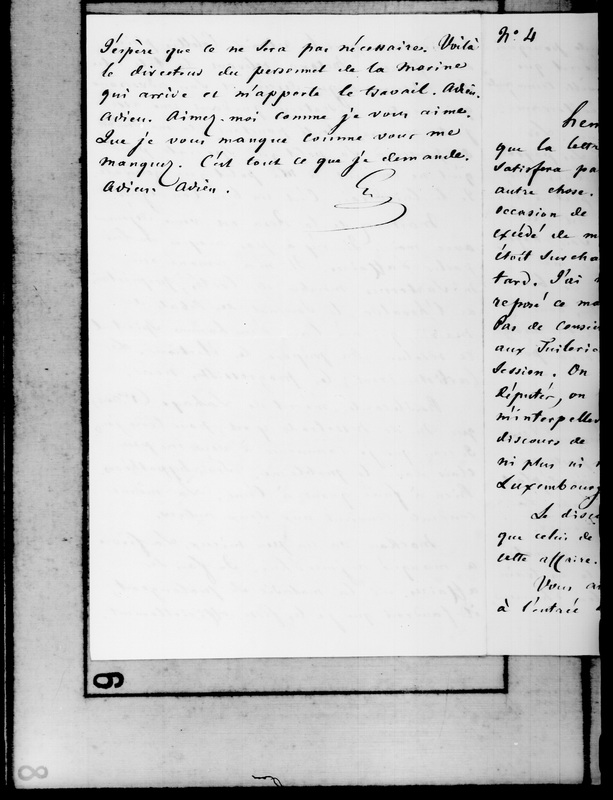 J'espère que ce ne sera pas nécessaire. Voilà
le directeur du personnel de la marine
qui arrive et m'appelle le travail. Adieu.
Adieu. Aimez-moi comme je vous aime.
Que je vous manque comme vous me
manquez. C'est tout ce que je demande.
Adieu. Adieu.
G
N° 4
que la lettre
satisfera pa
autre chose.
occasion de
excédé de m
étoit surcha
tard. J'ai
reposé ce ma
Pas de conseil
aux Tuileries
Session. On
député, on
m'interpeller
discours de
ni plus ni
Luxembourg
Le disc
que celui de
cette affaire.
Vous a
à l'entrée
9
8